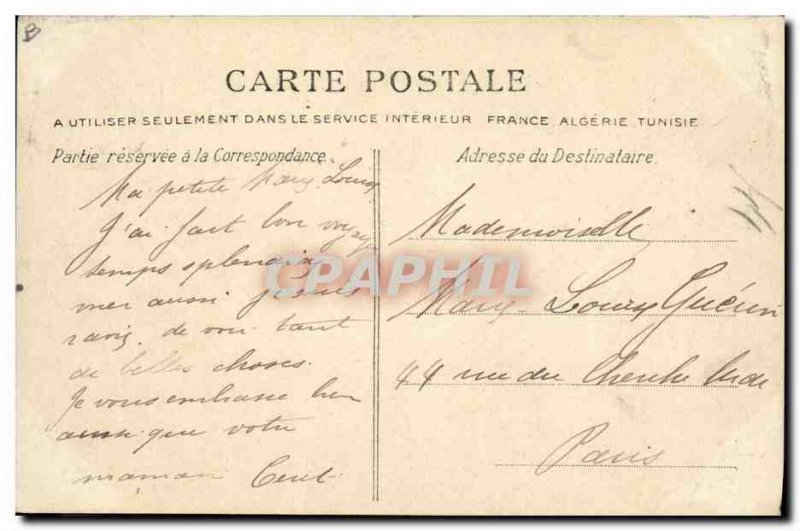 CARTE POSTALE
A UTILISER SEULEMENT DANS LE SERVICE INTÉRIEUR FRANCE, ALGÉRIE, TUNISIE
Partie réservée à la Correspondance.
Ma petite Mary Loury
J'ai fait bon voyage
temps splendide
mer aussi je suis
ravis de voir tant
de belles choses.
Je vous embrasse bien
ainsi que votre
maman
Adresse du Destinataire.
Mademoiselle
Mary Loury Guérin
44 rue du Cherche Midi
Paris
CPAPHIL